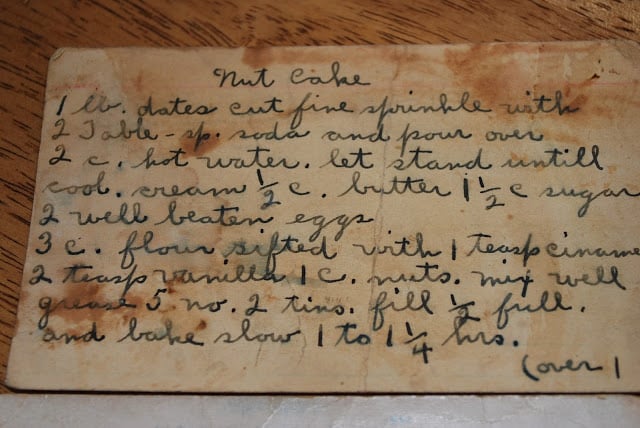 Nut Cake
1 lb. dates cut fine sprinkle with
2 Table-sp. soda and pour over
2 c. hot water. let stand untill
cool. cream 1/2 c. butter 1 1/2 c sugar
2 well beaten eggs
3 c. flour sifted with 1 teasp ciname
2 teasp vanilla 1 c. nuts. mix well
grease 5 no. 2 tins. fill 1/2 full.
and bake slow 1 to 1 1/4 hrs.
(over)